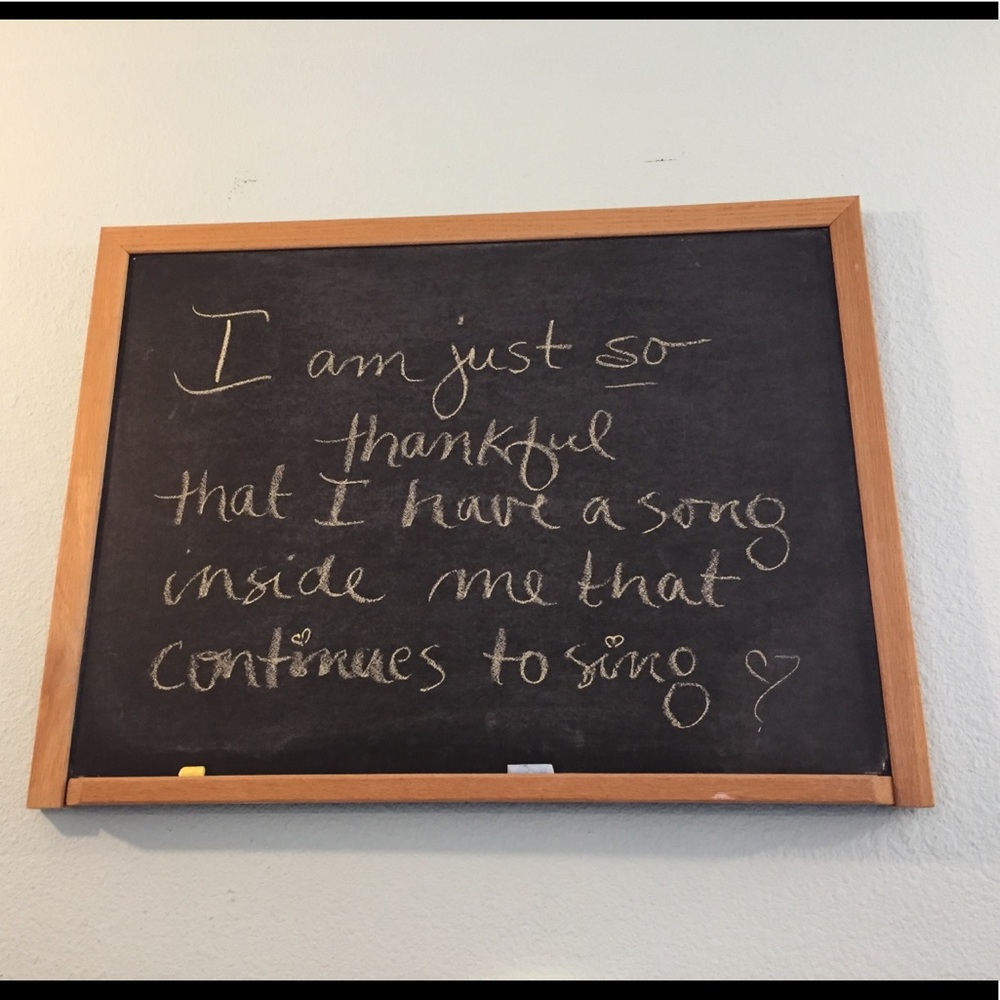 I am just so
thankful
that I have a song
inside me that
continues to sing ♡